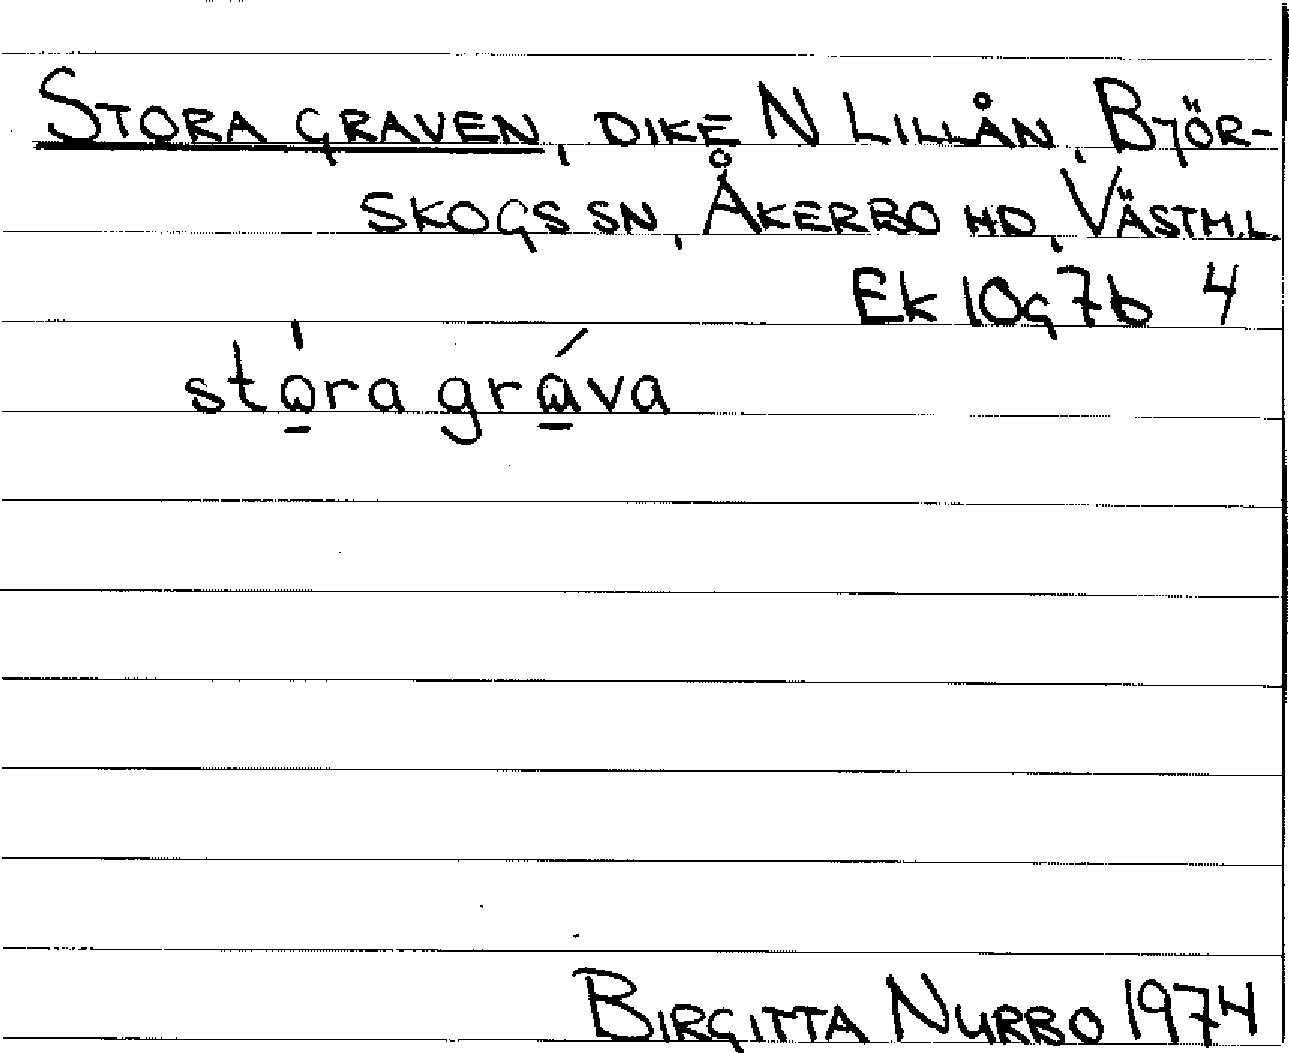 STORA GRAVEN, DIKE N LILLÅN, BJÖR-
SKOGS SN, ÅKERBO HD, VÄSTM.L.
Ek 10g 7b 4
stora grava
BIRGITTA NYRBO 1974